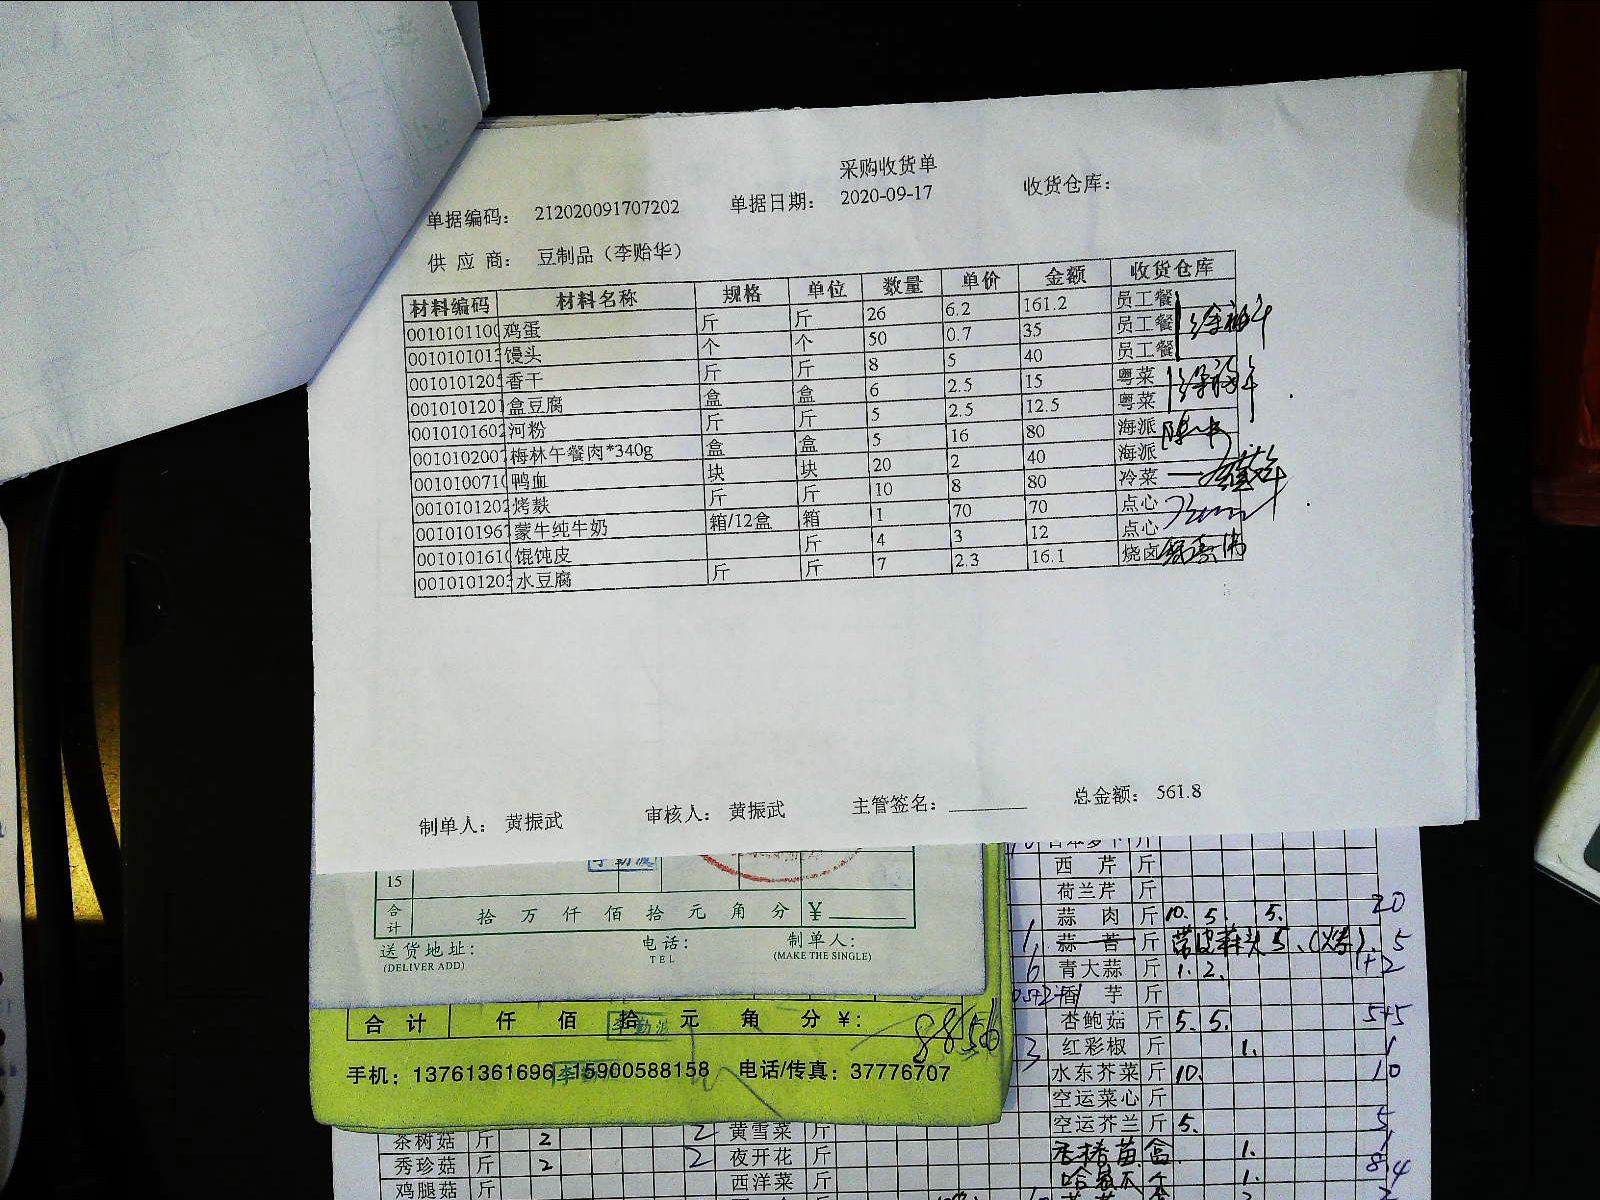 采购收货单
单据编码： 212020091707202 单据日期： 2020-09-17 收货仓库：
供 应 商： 豆制品（李贻华）
材料编码 材料名称 规格 单位 数量 单价 金额 收货仓库
0010101100 鸡蛋 斤 斤 26 6.2 161.2 员工餐
001010101 馒头 个 个 50 0.7 35 员工餐
001010120 香干 斤 斤 8 5 40 员工餐
001010120 盒豆腐 盒 盒 6 2.5 15 粤菜
001010160 河粉 斤 斤 5 2.5 12.5 粤菜
001010200 梅林午餐肉*340g 盒 盒 5 16 80 海派
001010071 鸭血 块 块 20 2 40 海派
001010120 烤麸 斤 斤 10 8 80 冷菜
001010196 蒙牛纯牛奶 箱/12盒 箱 1 70 70 点心
001010161 馄饨皮 斤 4 3 12 点心
001010120 水豆腐 斤 斤 7 2.3 16.1 烧卤
制单人： 黄振武 审核人： 黄振武 主管签名： 总金额： 561.8
西 芹 斤
15
荷兰芹 斤
合计 拾 万 仟 佰 拾 元 角 分 ¥
蒜 肉 斤 10. 5. 5. 20
送货地址： 电话： 制单人：
(DELIVER ADD) TEL (MAKE THE SINGLE)
斤 5
6 青大蒜 斤 1. 2. 1+2
芋 斤
合 计 仟 佰 拾 元 角 分 ¥：
杏鲍菇 斤 5. 5. 5+5
3 红彩椒 斤 1. 1
手机：13761361696 15900588158 电话/传真：37776707
水东芥菜 斤 10. 10
空运菜心 斤
空运芥兰 斤 5. 5
茶树菇 斤 2 2 黄雪菜 斤
秀珍菇 斤 2 2 夜开花 斤
鸡腿菇 斤 西洋菜 斤